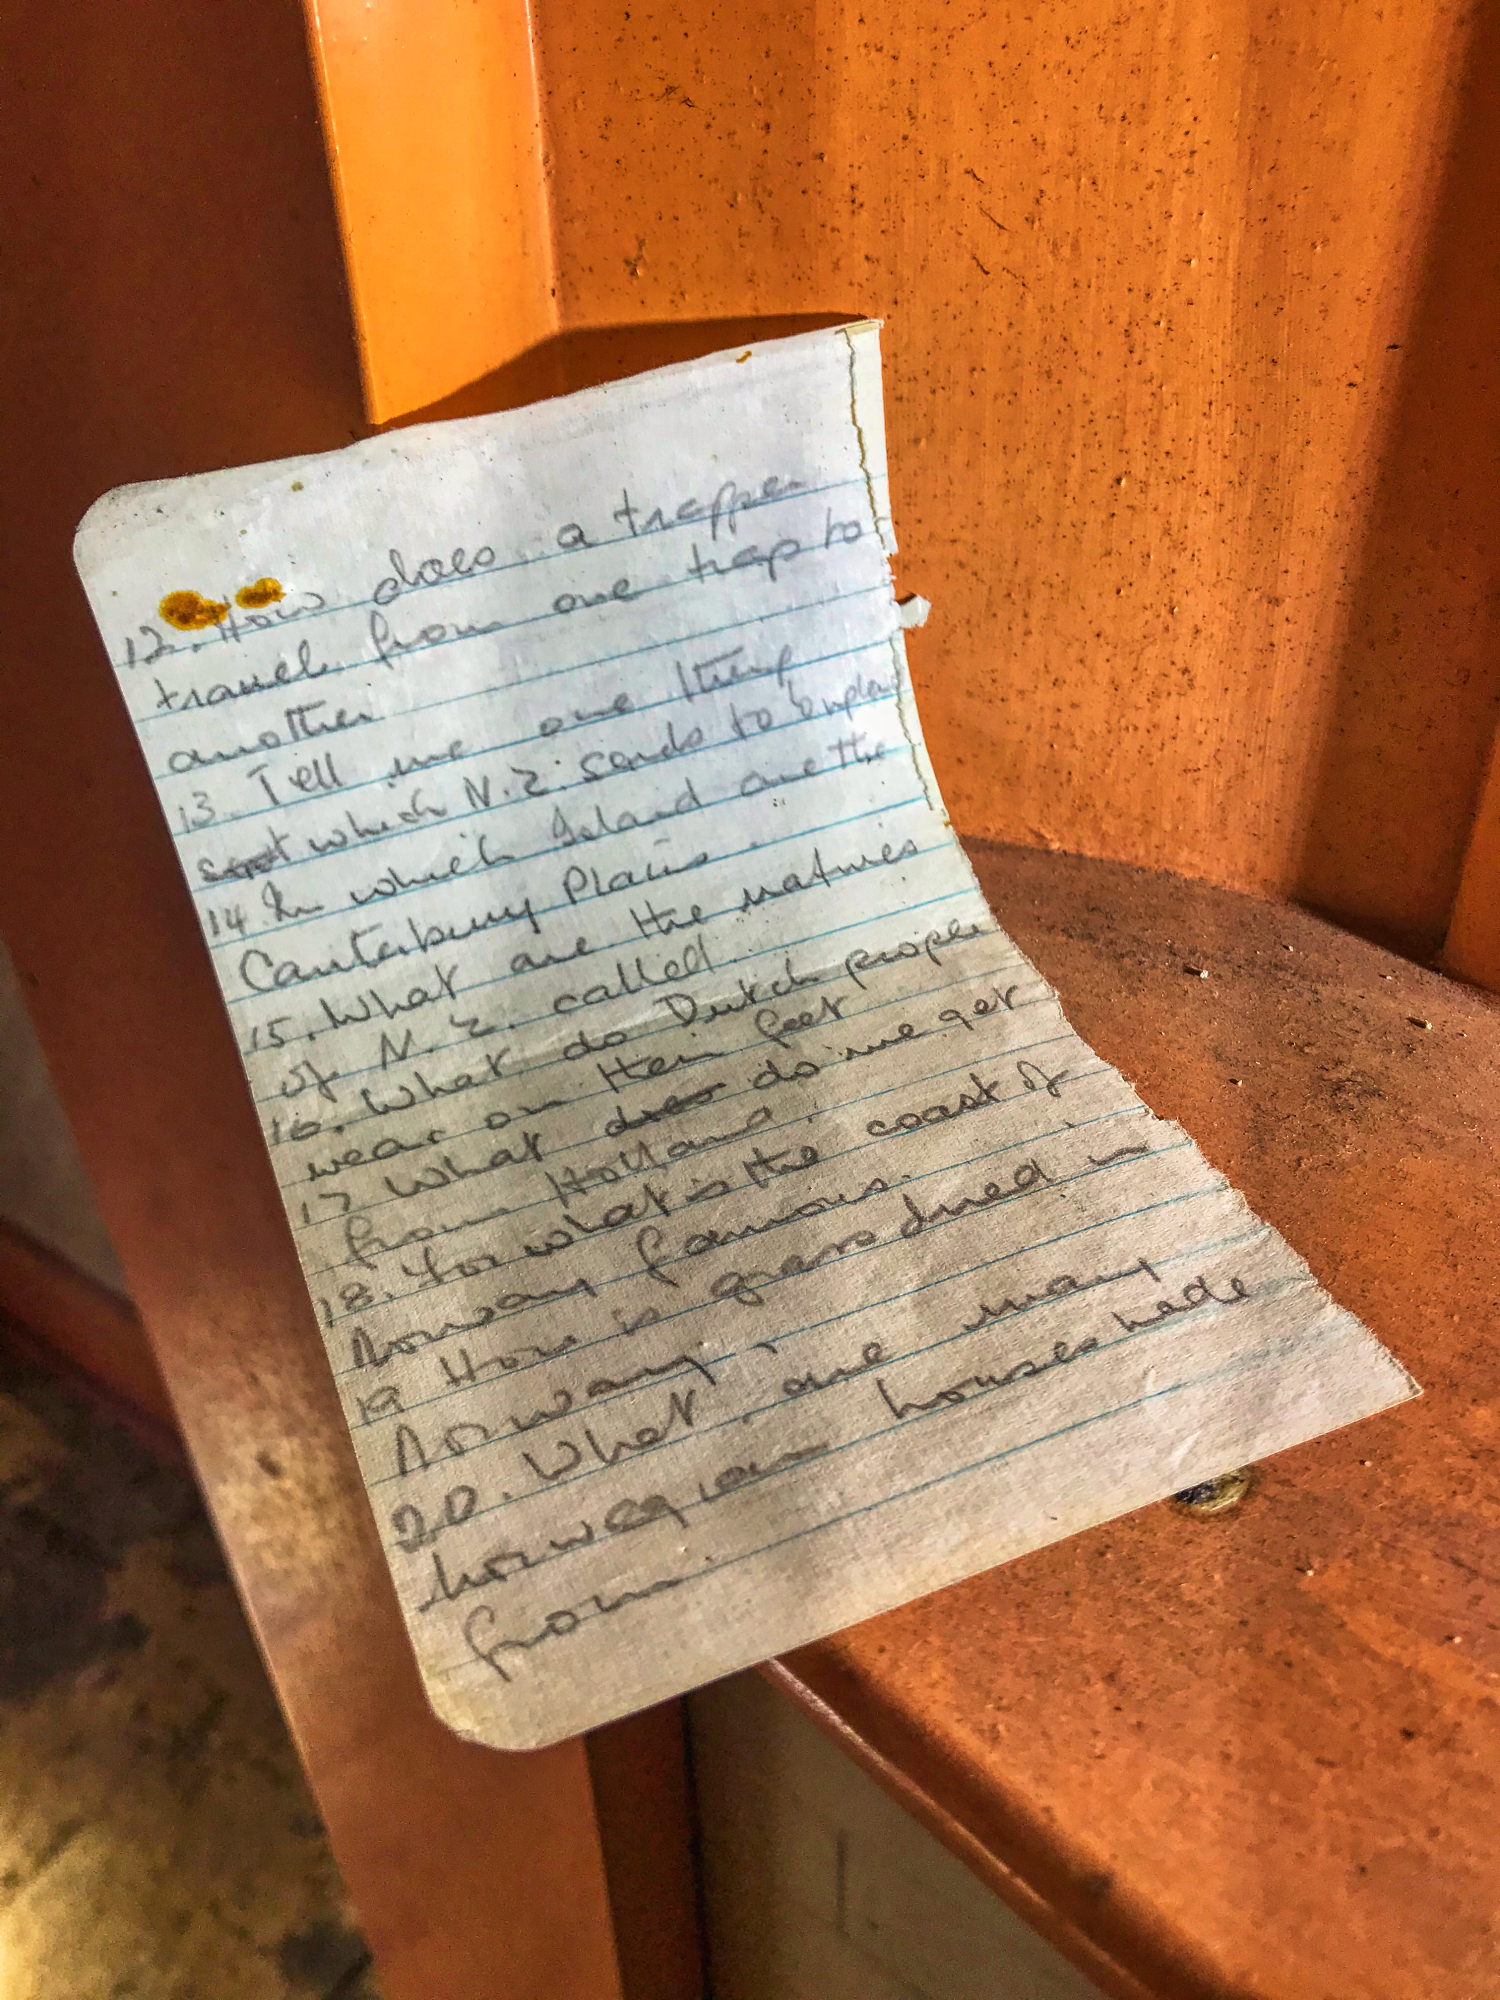 12. How does a trapper
travel from one trap to
another
13. Tell me one thing
which N.Z. sends to England
14. In which Island are the
Canterbury Plains.
15. What are the natives
of N.Z. called.
16. What do Dutch people
wear on their feet
17 What does do we get
from Holland.
18. For what is the coast of
Norway famous.
19 How is grass dried in
Norway.
20. What are many
Norwegian houses made
from